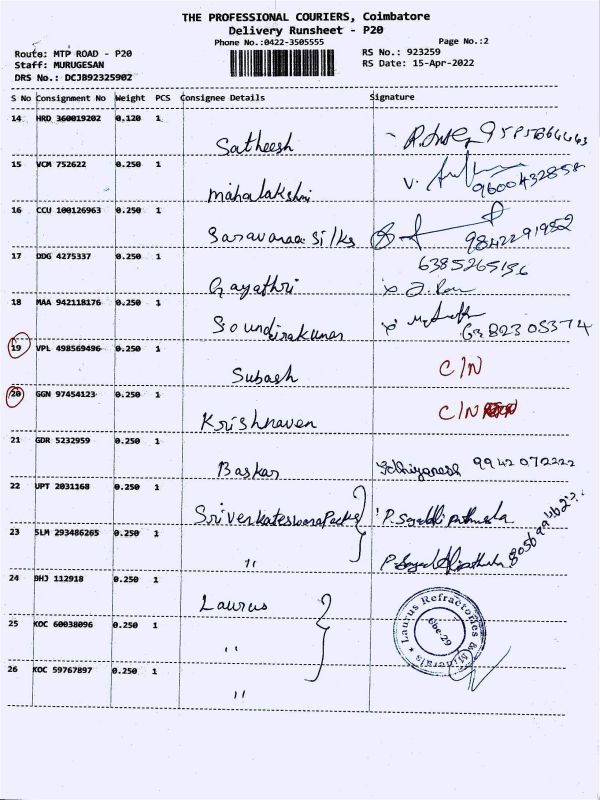 THE PROFESSIONAL COURIERS, Coimbatore
Delivery Runsheet - P20
Phone No.:0422-3505555 Page No.:2
Route: MTP ROAD - P20 RS No.: 923259
Staff: MURUGESAN RS Date: 15-Apr-2022
DRS No.: DCJB92325902
S No Consignment No Weight PCS Consignee Details Signature
14 HRD 360019202 0.120 1
Satheesh
15 VCM 752622 0.250 1
mahalakshmi V. 9600432858
16 CCU 100126963 0.250 1
Saravanaa Silks 9842291982
17 DDG 4275337 0.250 1 6385265156
Gayathri
18 MAA 942118176 0.250 1
Soundirakumar 6382305374
19 VPL 498569496 0.250 1
Subash C/N
20 GGN 97454123 0.250 1
Krishnaven C/N
21 GDR 5232959 0.250 1
Baskar 9942072222
22 UPT 2031168 0.250 1
Srivenkateswara Packs
23 SLM 293486265 0.250 1
"
24 BHJ 112918 0.250 1
Laurus
25 KOC 60038096 0.250 1
"
26 KOC 59767897 0.250 1
"
Laurus Refractories &
Minerals